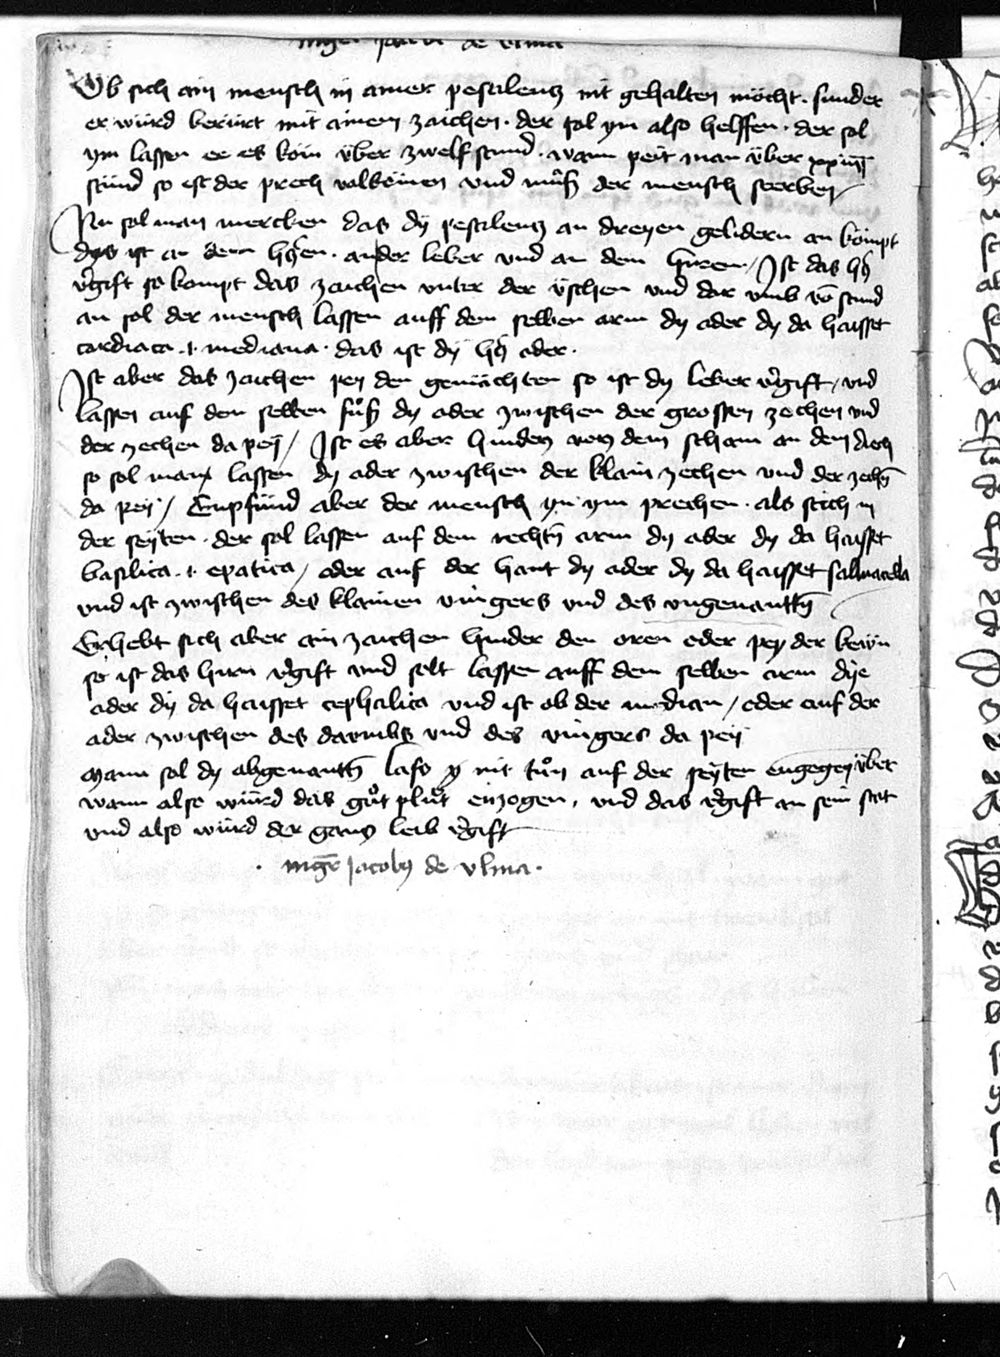 mgr jacobi de vlma
Ob sich ain mensch in ainer pestilentz nit gehalten möcht · sunder
er würd berürt mit ainem zaichen · der sol ym also helffen · der sol
ym lassen ee es köm über zwelf stund · wann peit man über xxiiij
stund so ist der prech volkömen vnd müß der mensch sterben /
Nu sol man mercken das dy pestilentz an dreyen gelidern an kompt
dys ist an dem hertzen · an der leber vnd an dem hiren / Ist das htz
vgift so kompt das zaichen vnter der üschen vnd dar vmb võ stund
an sol der mensch lassen auff dem selben arm dy ader dy da haisset
cardiaca · t · mediana · das ist dy htz ader ·
Ist aber das zaichen pey den gemächten so ist dy leber vgift / vnd
lassen auf dem selben fuͦß dy ader zwischen der grossen zechen vnd
der zechen da pey / Ist es aber hinden von dem scham an den diech
so sol man lassen dy ader zwischen der klain zechen vnd der zechñ
da pey / Empfünd aber der mensch yn ym prechen · als stich in
der seyten · der sol lassen auf dem rechtñ arm dy ader dy da haisset
basilica · t · epatica / oder auf der hant dy ader dy da haisset salmacella
vnd ist zwischen des klainen vingers vnd des vngenanttñ
Erhebt sich aber ain zaichen hinder den oren oder pey der keyn
so ist das hirn vgift vnd solt lassen auff dem selben arm dye
ader dy da haisset cephalica vnd ist ob der median / oder auf der
ader zwischen des daumbs vnd des vingers da pey
Mann sol dy abgenanttñ lasß y nit tuͦn auf der seyten engegen über
wann also würd das guͦt pluͦt enzogen · vnd das vgift an sein stat
vnd also würd der gantz leib vgift
· mgr jacobus de vlma ·